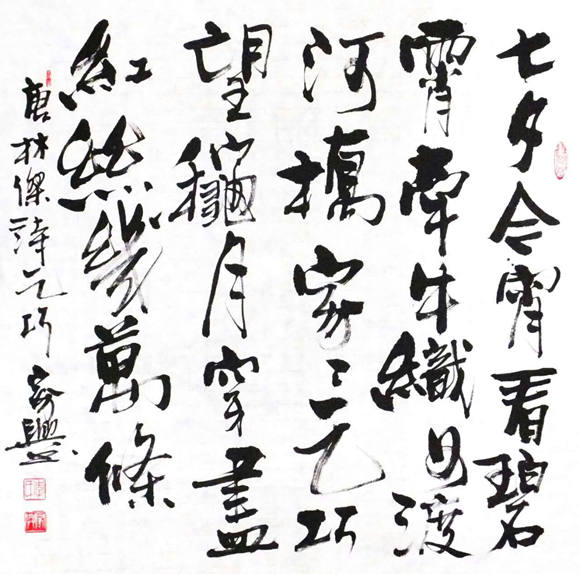 七夕今宵看碧
霄牽牛織女渡
河橋家々乞巧
望龝月穿盡
紅絲幾萬條
唐林傑詩乞巧